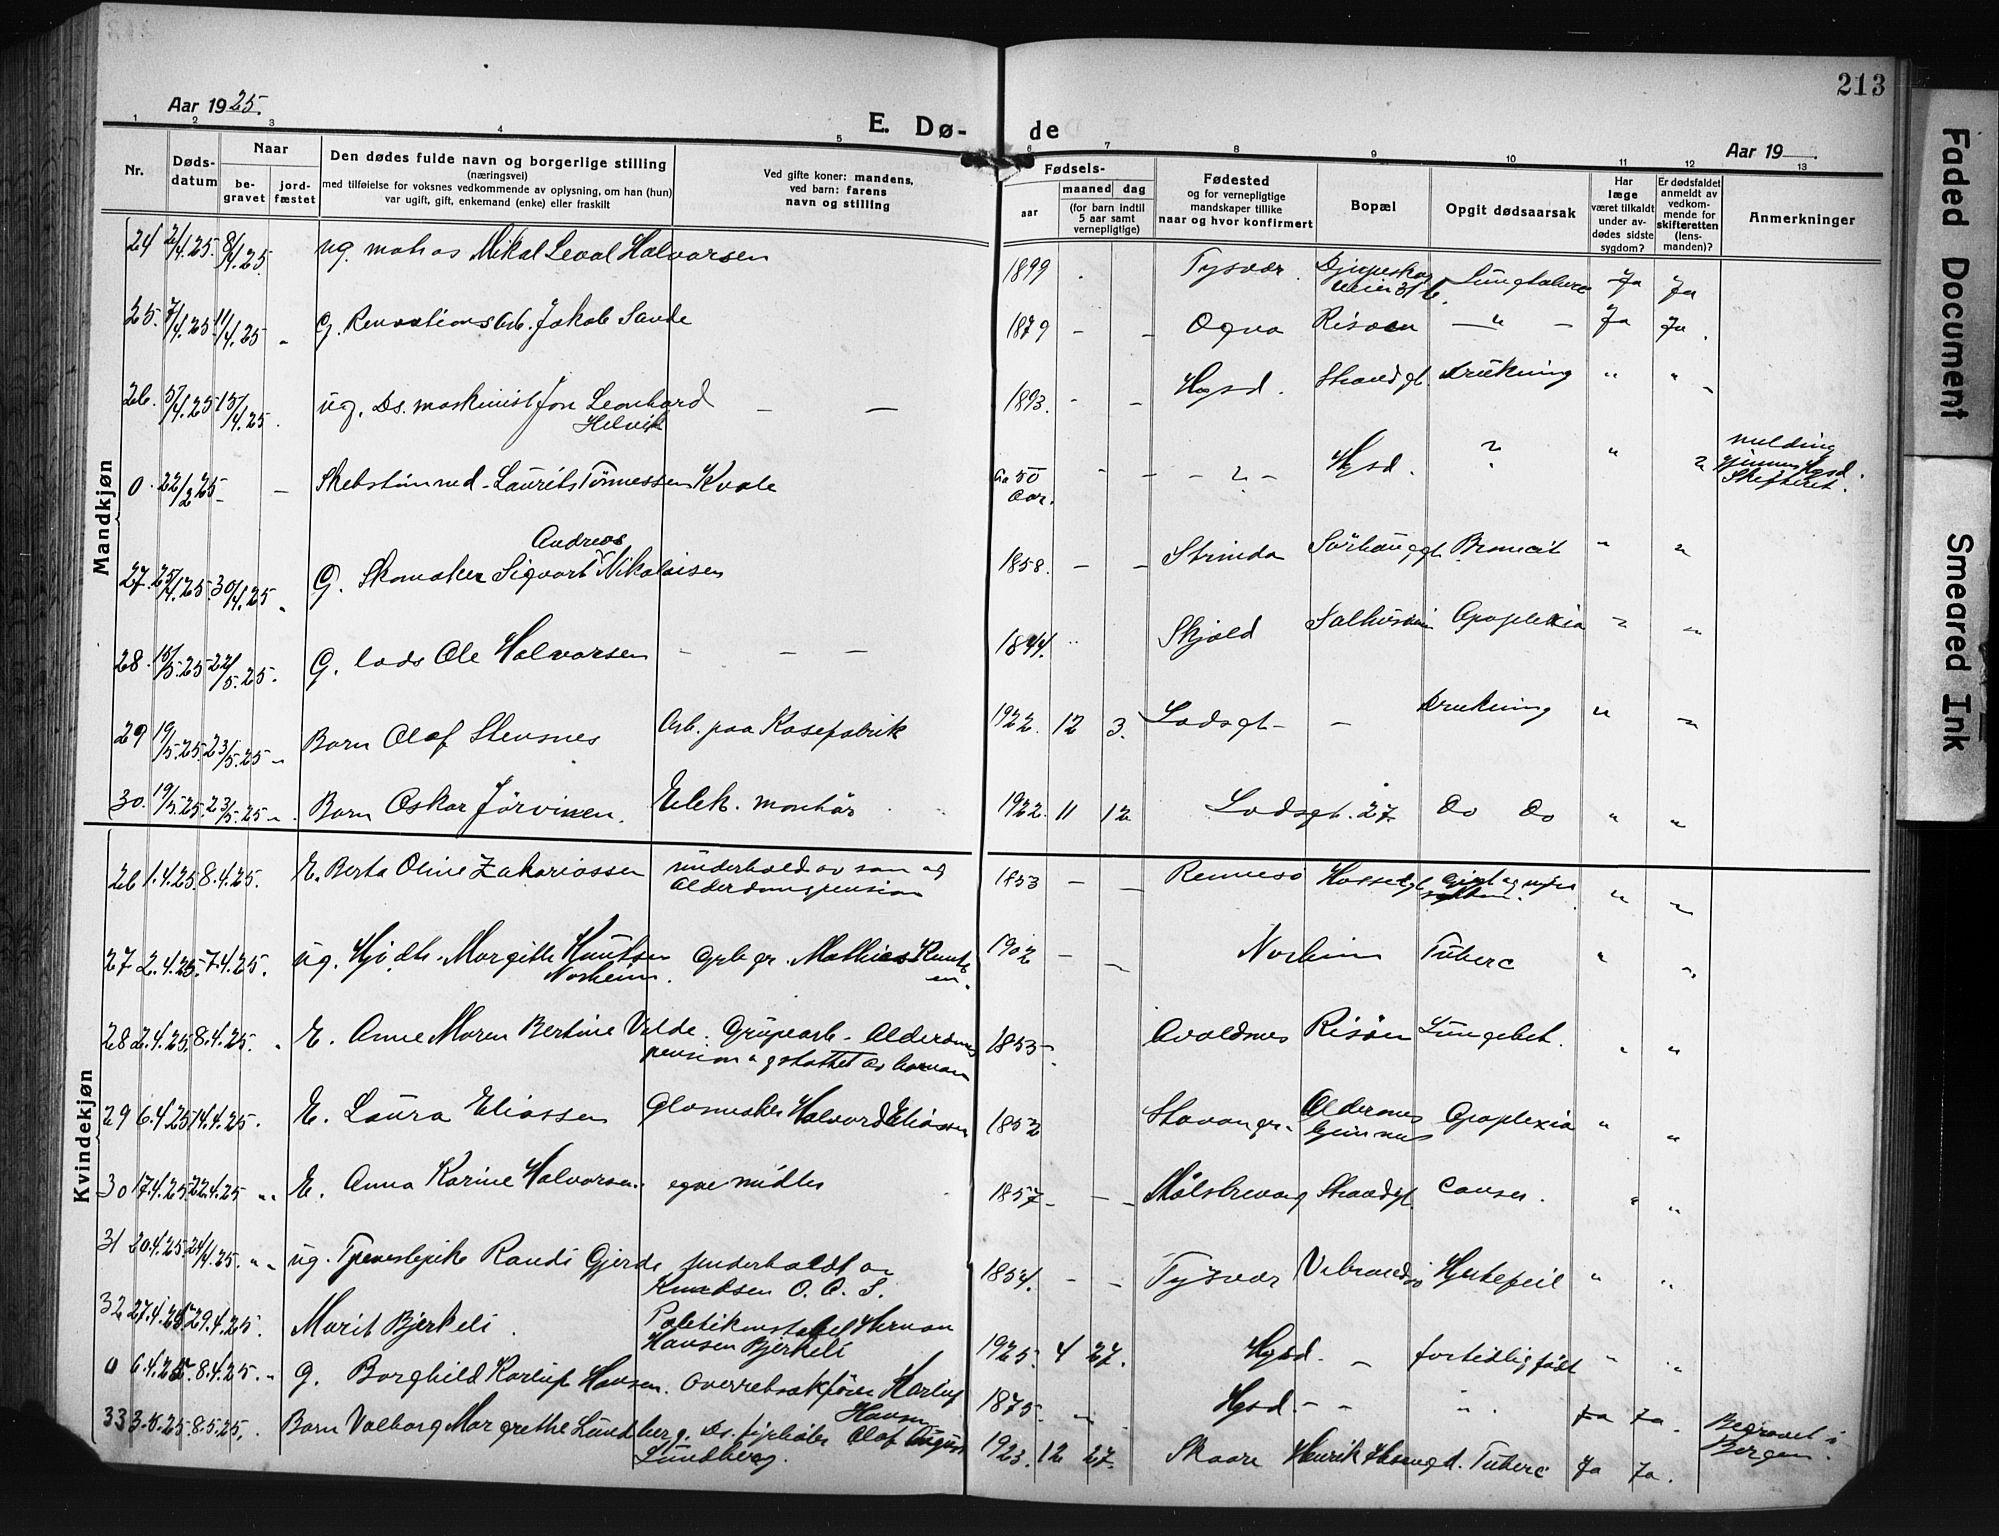 213
Aar 1925.
E. Dø-
de
Aar 19
1 2 3 4 5 6 7 8 9 10 11 12 13
Nr.
Døds-
datum
Naar
be-
gravet
jord-
fæstet
Den dødes fulde navn og borgerlige stilling
(næringsvei)
med tilføielse for voksnes vedkommende av oplysning, om han (hun)
var ugift, gift, enkemand (enke) eller fraskilt
Ved gifte koner: mandens,
ved barn: farens
navn og stilling
Fødsels-
aar
maaned dag
(for barn indtil
5 aar samt
vernepligtige)
Fødested
og for vernepligtige
mandskaper tillike
naar og hvor konfirmert
Bopæl
Opgit dødsaarsak
Har
læge
været tilkaldt
under av-
dødes sidste
sygdom?
Er dødsfaldet
anmeldt av
vedkom-
mende for
skifteretten
(lens-
manden)?
Anmerkninger
Mandkjøn
24 2/4.25 8/4.25. ug. matros Mikal Leval Halvorsen 1899 Tysvær. Lungtuberc Ja Ja
25. 7/4.25 11/4.25 G. Renovationsarb. Jakob Sande 1879 - - Ogna Risøen — " — Ja Ja.
26. 5/4.25 15/4.25. ug. Ds. maskinist Jon Leonhard — — 1893. - - Hgsd. Strandgt. Drukning " "
Helvik
0. 22/2 25 - Skibstømmed. Laurits Tønnessen Kvale ca 50 - - ? - Hgsd. ? "
Aar.
melding
gjennem Hgsd.
Skifteret.
Andreas
27. 25/4.25. 30/4.25 G. Skomaker Sigvart Nikolaisen 1858. - - Strinda Sørhauggt. " "
28. 15/5.25 22/5.25. G. lods Ole Halvorsen - - - 1844. Skjold Apoplexia " "
29 19/5.25. 23/5.25 Barn Olaf Stensnes Arb. paa Kasefabrik 1922. 12 3. Lodsgt - - Drukning " "
30. 19/5.25. 23/5.25 Barn Oskar Järvinen. Elek. montør 1922. 11 12 Lodsgt. 27. Do Do " "
Kvindekjøn
26 1.4.25. 8.4.25. E. Berta Oline Zakariassen underhold av søn og 1853 - - Rennesø " "
Alderdomspension
27 2.4.25. 7.4.25. ug. Margith Knutsen Mathias Knuts 1902 - - Norheim Tuberc " "
Norheim. en.
28 2.4.25. 8.4.25. E. Anne Maren Bertine Velde. Grupearb. Alderdoms 1853 - Avaldnes Risøen Lungebet. " "
pension og støttet av barnan
29 6.4.25 14.4.25. E. Laura Eliassen Glasmester Halvord Eliassen 1852 Stavanger. Alderdoms Apoplexia " "
hjemmet
30 17.4.25. 22.4.25 " E. Anna Karine Halvorsen. egne midler 1857 - - Strandgt. Cancer. " "
31 20.4.25. 24/4.25. " ug. Tjenestepike Randi Gjerde underholdt av 1854. - - Tysvær Hjertefeil " "
Knudsen O. A. S.
32 27.4.25 29.4.25. Marit Bjerkeli. Herman 1925. 4 27. Hgsd. - fortidlig født " "
Hansen Bjerkeli
0 6.4.25 8.4.25. " g. Borghild Hansen. Overretsakfører 1875. - Hgsd. - - " Ja Ja.
Hansen
Begravet i
Bergen.
33 3.5.25. 8.5.25. Barn Valborg Margrethe Lundberg. Ds. fyrbøter Olaf August 1923. 12 27. Skaare Henrik Ibsensgt. Tuberc Ja Ja.
Lundberg.
Faded Document
Smeared Ink